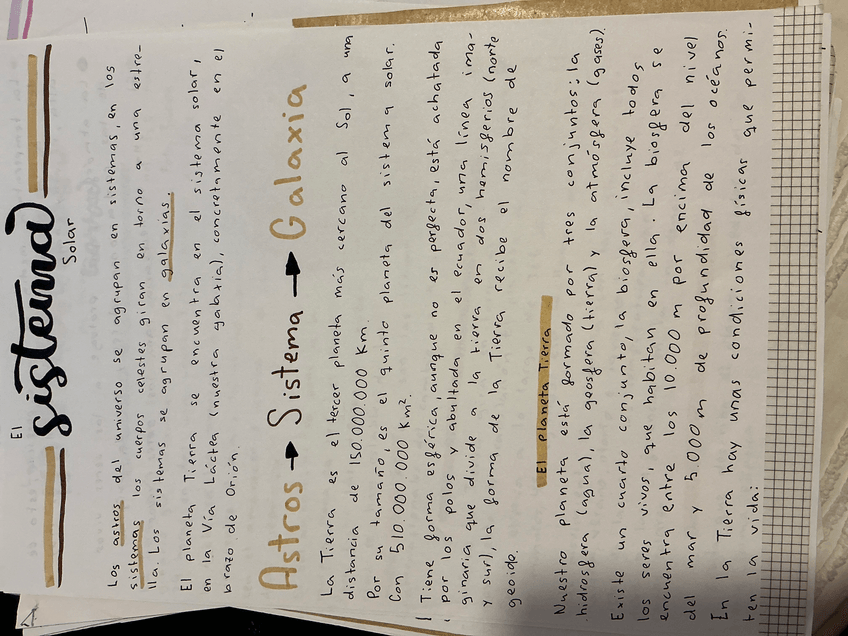 El
sistema
Solar
Los astros del universo se agrupan en sistemas, en los
sistemas los cuerpos celestes giran en torno a una estre-
lla. Los sistemas se agrupan en galaxias.
El planeta Tierra se encuentra en el sistema solar,
en la Vía Láctea (nuestra galaxia), concretamente en el
brazo de Orión.
Astros → Sistema → Galaxia
La Tierra es el tercer planeta más cercano al Sol, a una
distancia de 150.000.000 Km.
Por su tamaño, es el quinto planeta del sistema solar.
Con 510.000.000 Km².
Tiene forma esférica, aunque no es perfecta, está achatada
por los polos y abultada en el ecuador, una línea ima-
ginaria que divide a la tierra en dos hemisferios (norte
y sur), la forma de la Tierra recibe el nombre de
geoide.
El planeta Tierra
Nuestro planeta está formado por tres conjuntos; la
hidrosfera (agua), la geosfera (tierra) y la atmósfera (gases).
Existe un cuarto conjunto, la biosfera, incluye todos
los seres vivos, que habitan en ella. La biosfera se
encuentra entre los 10.000 m por encima del nivel
del mar y 5.000 m de profundidad de los océanos.
En la Tierra hay unas condiciones físicas que permi-
ten la vida: